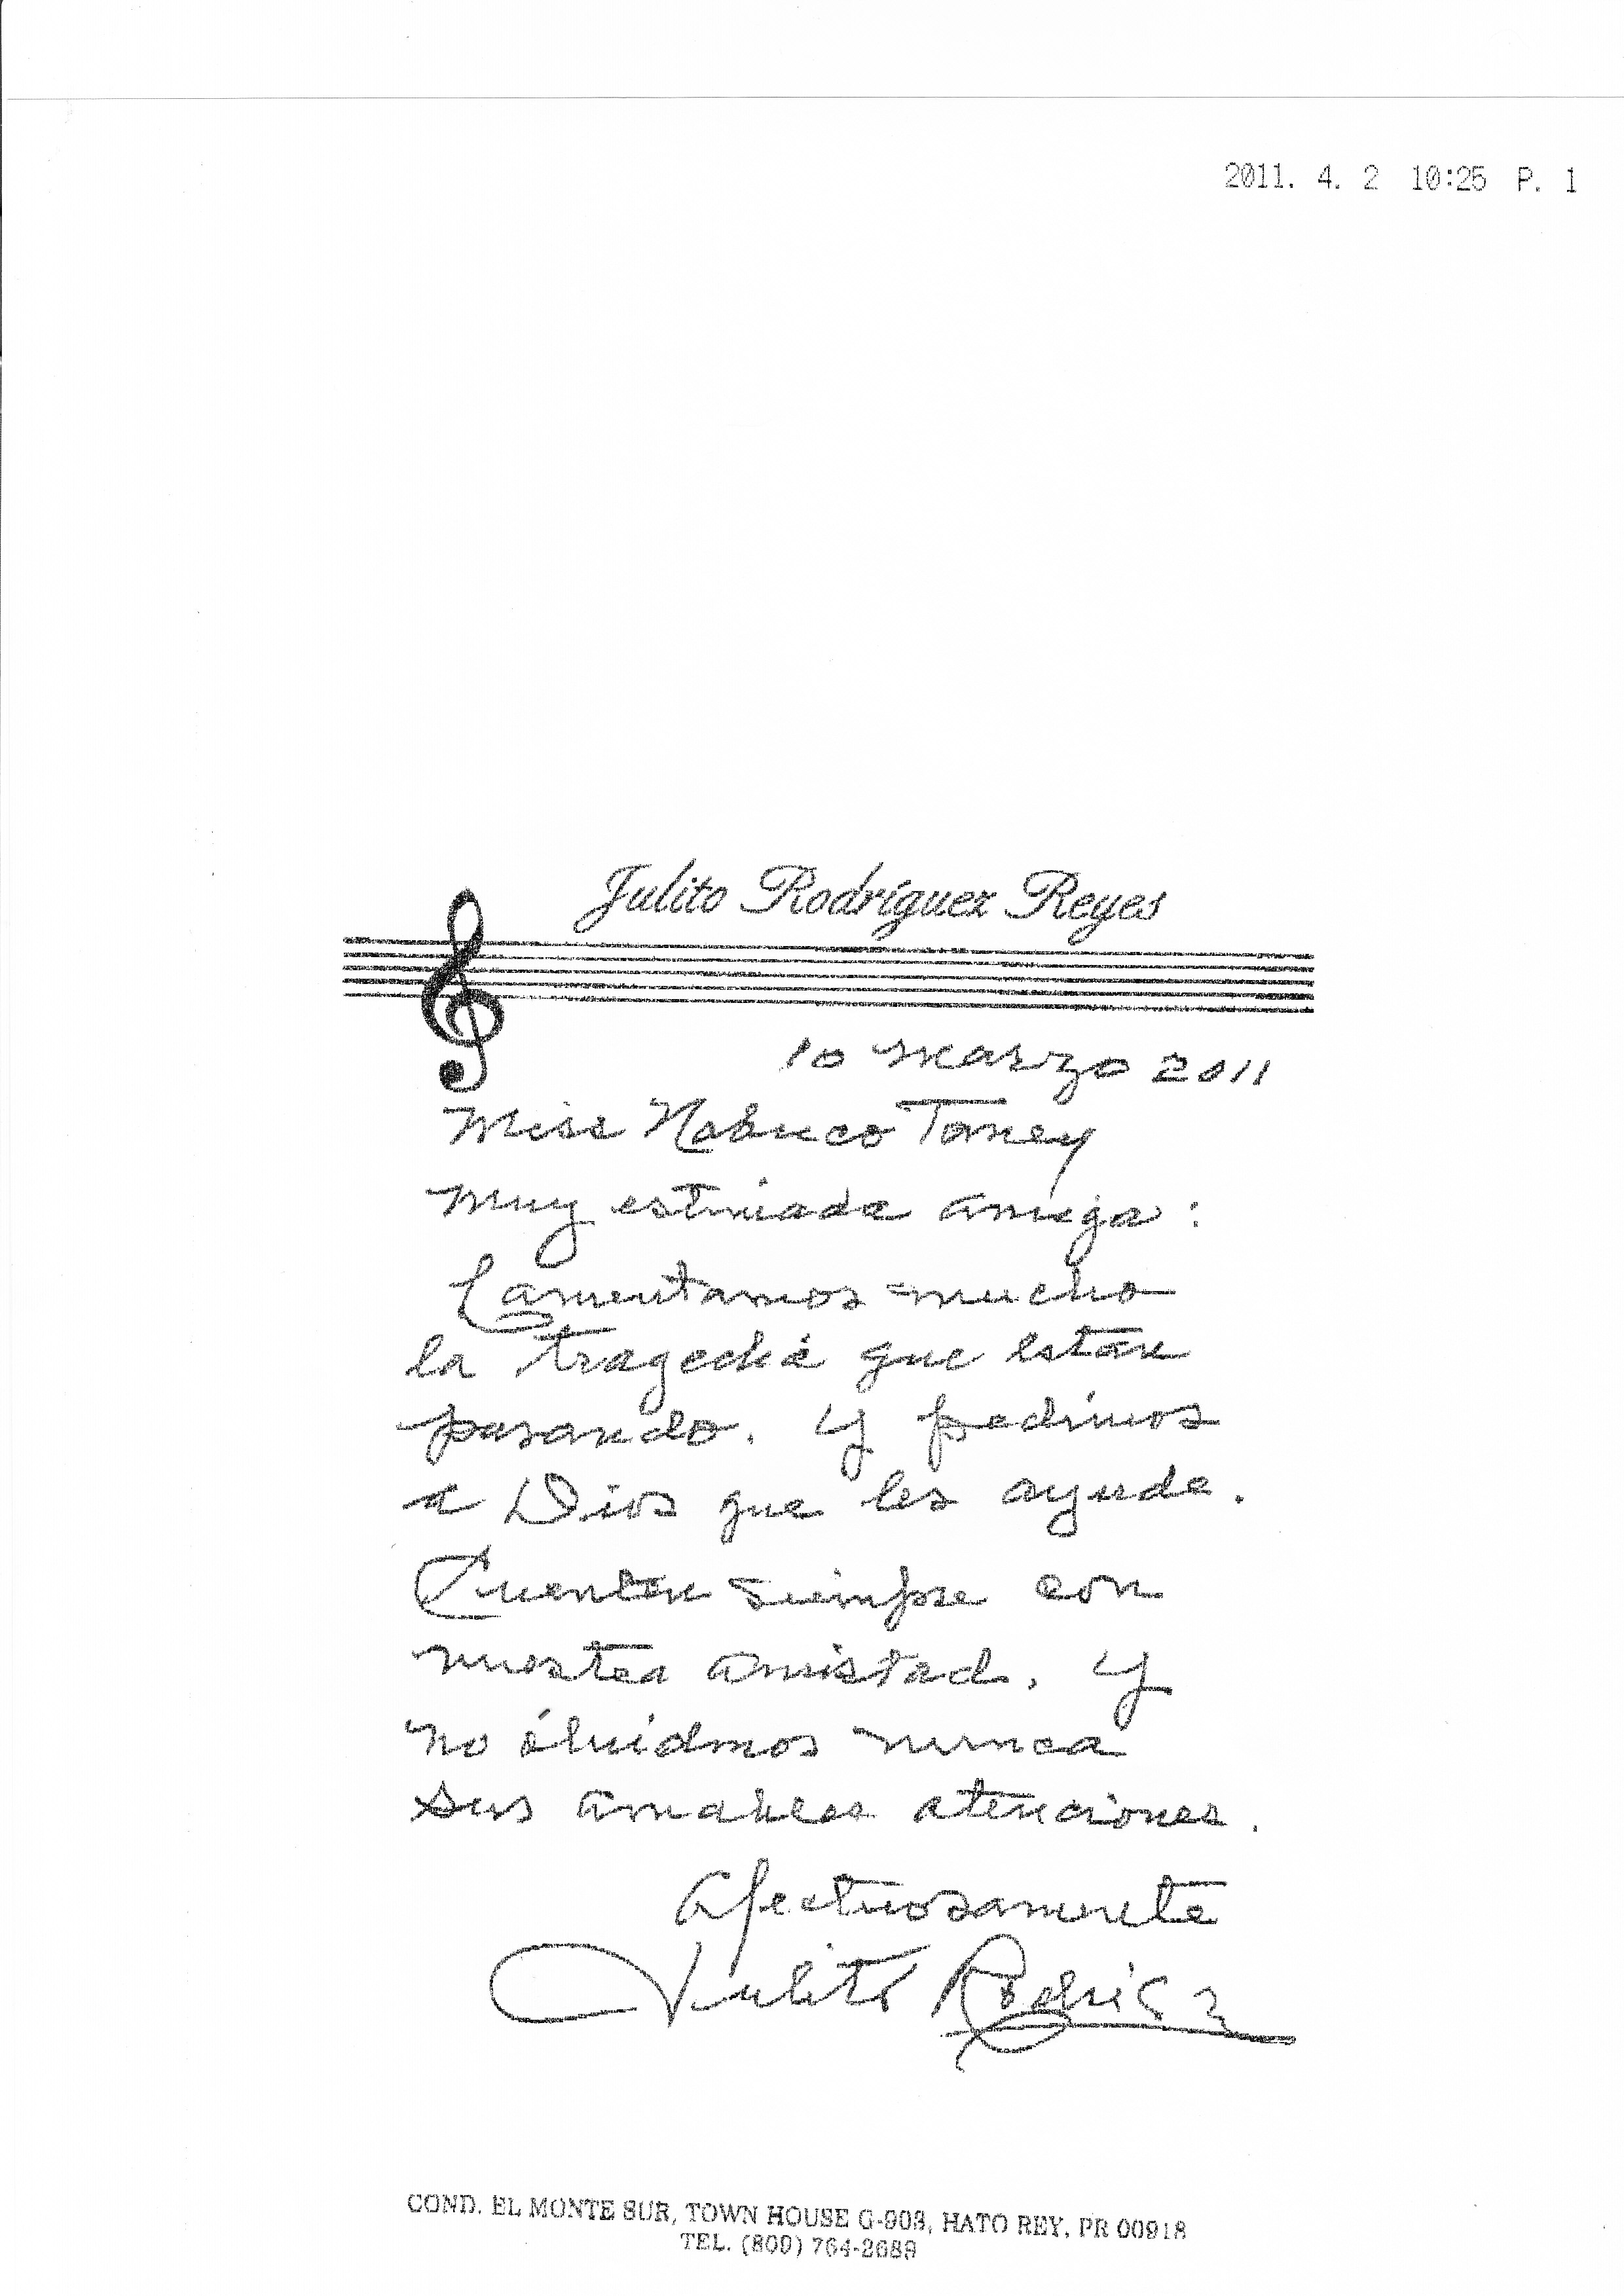 2011. 4. 2 10:25 P. 1
Julito Rodríguez Reyes
10 marzo 2011
Miss Nobuco Taney
Muy estimada amiga:
Lamentamos mucho
la tragedia que están
pasando. Y pedimos
a Dios que les ayude.
Cuenten siempre con
nuestra amistad. Y
no olvidmos nunca
sus amables atenciones.
Afectuosamente
Julito Rodrígz
COND. EL MONTE SUR, TOWN HOUSE G-903, HATO REY, PR 00918
TEL. (809) 764-2689